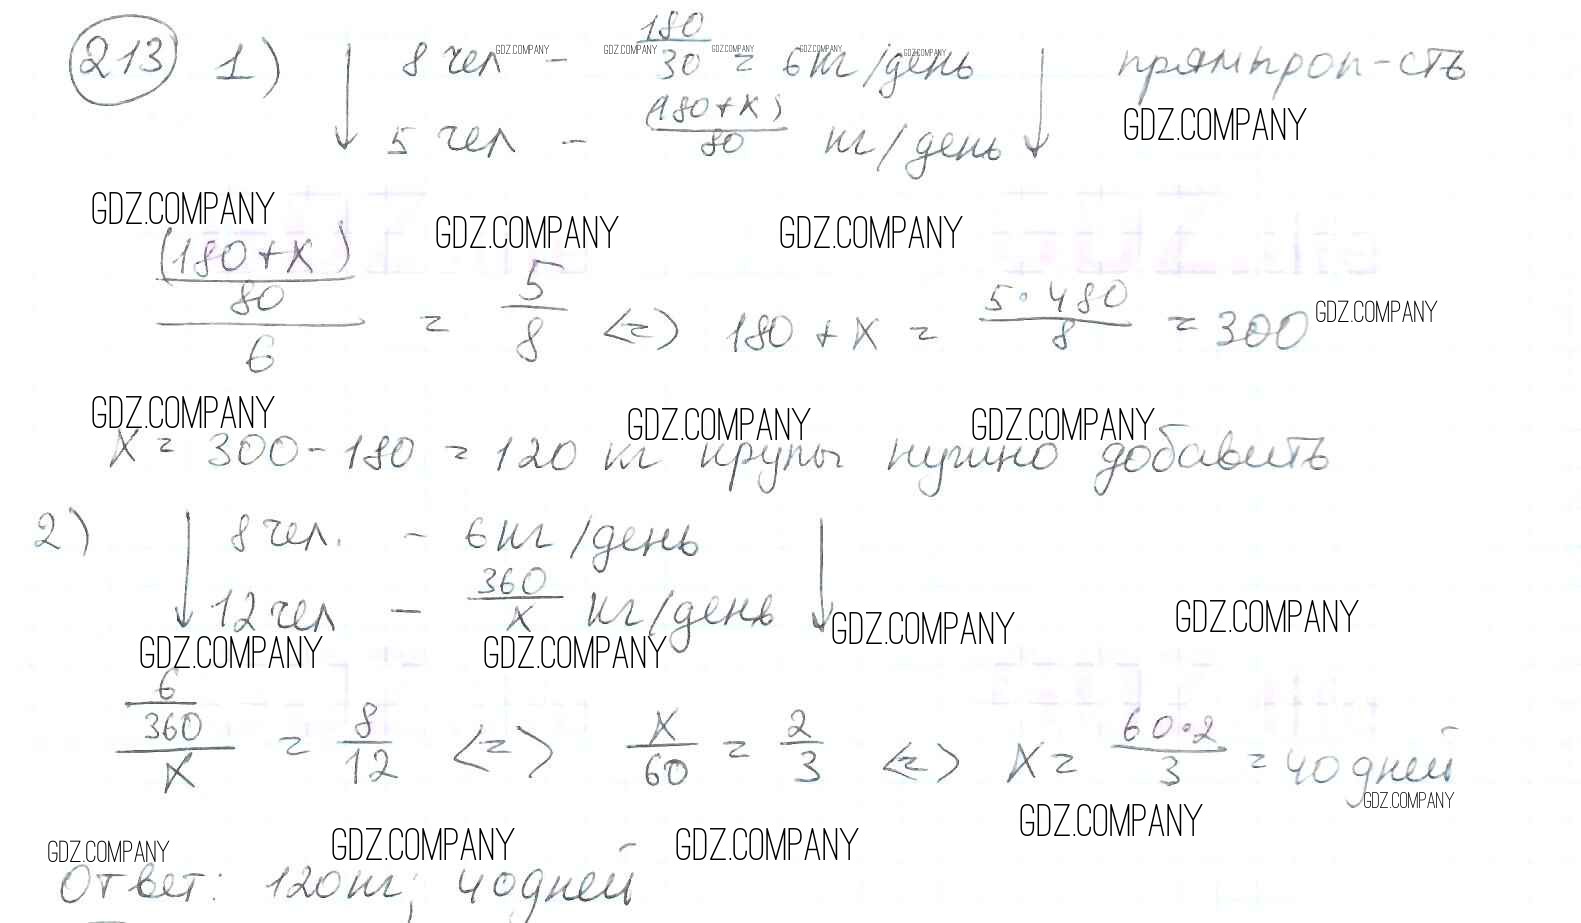 213 1) 8 чел - 180/30 = 6 кг/день прямпроп-сть
5 чел - (180+x)/80 кг/день
GDZ.COMPANY GDZ.COMPANY GDZ.COMPANY GDZ.COMPANY GDZ.COMPANY
GDZ.COMPANY
GDZ.COMPANY GDZ.COMPANY GDZ.COMPANY
((180+x)/80)/6 = 5/8 <=> 180 + x = 5·480/8 = 300
GDZ.COMPANY
GDZ.COMPANY GDZ.COMPANY GDZ.COMPANY
x = 300 - 180 = 120 кг крупы нужно добавить
2) 8 чел. - 6 кг/день
12 чел - 360/x кг/день
GDZ.COMPANY GDZ.COMPANY GDZ.COMPANY GDZ.COMPANY
6/(360/x) = 8/12 <=> x/60 = 2/3 <=> x = 60·2/3 = 40 дней
GDZ.COMPANY
GDZ.COMPANY GDZ.COMPANY GDZ.COMPANY GDZ.COMPANY
Ответ: 120 кг; 40 дней